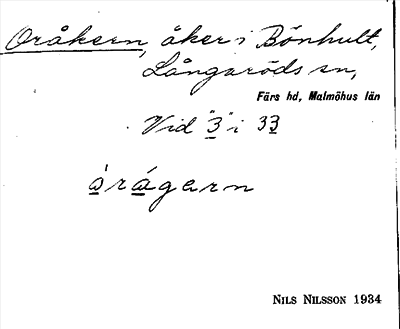 Oråkern, åker i Bönhult,
Långaröds sn,
Färs hd, Malmöhus län
Vid "3" i 33
òrágarn
NILS NILSSON 1934